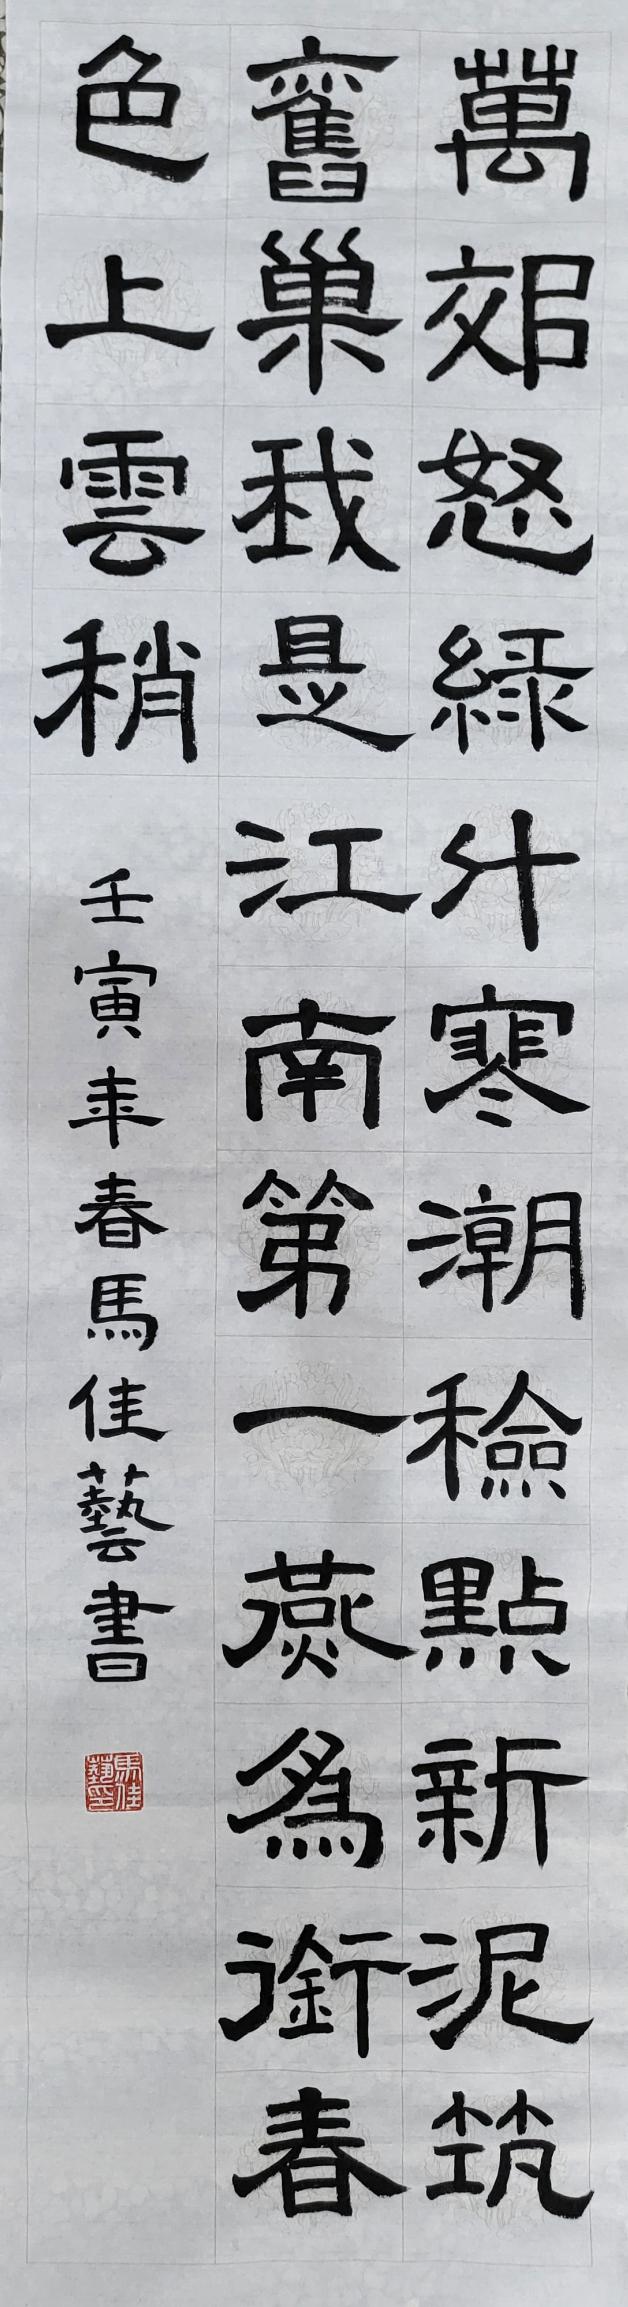 萬郊怒綠斗寒潮檢點新泥筑
舊巢我是江南第一燕為銜春
色上雲稍
壬寅年春馬佳藝書
馬佳藝印